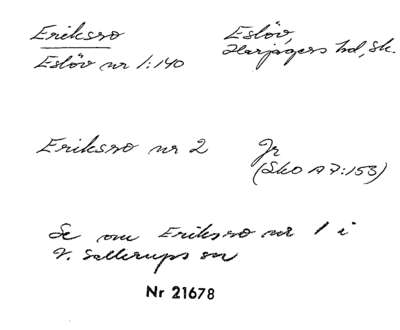 Eriksro Eslöv,
Eslöv nr 1:140 Harjagers hd, Sk.
Eriksro nr 2 Jr
(Sko A 7:153)
Se om Eriksro nr 1 i
V. Sallerups sn
Nr 21678